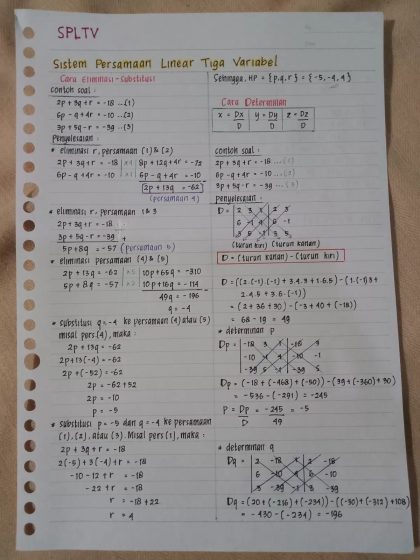 SPLTV
Sistem Persamaan Linear Tiga Variabel
Cara Eliminasi-Substitusi
contoh soal:
2p + 3q + r = -18 ...(1)
6p - q + 4r = -10 ...(2)
3p + 5q - r = -39 ...(3)
Penyelesaian:
* eliminasi r, persamaan (1) & (2)
2p + 3q + r = -18 | x4 | 8p + 12q + 4r = -72
6p - q + 4r = -10 | x1 | 6p - q + 4r = -10
2p + 13q = -62
(persamaan 4)
* eliminasi r, persamaan 1 & 3
2p + 3q + r = -18
3p + 5q - r = -39 +
5p + 8q = -57 (persamaan 5)
* eliminasi persamaan (4) & (5)
2p + 13q = -62 | x5 | 10p + 65q = -310
5p + 8q = -57 | x2 | 10p + 16q = -114
49q = -196
q = -4
* substitusi q = -4 ke persamaan (4) atau (5)
misal pers (4), maka:
2p + 13q = -62
2p + 13(-4) = -62
2p + (-52) = -62
2p = -62 + 52
2p = -10
p = -5
* substitusi p = -5 dan q = -4 ke persamaan
(1), (2), atau (3). Misal pers (1), maka:
2p + 3q + r = -18
2(-5) + 3(-4) + r = -18
-10 - 12 + r = -18
-22 + r = -18
r = -18 + 22
r = 4
Sehingga, HP = {p, q, r} = {-5, -4, 4}
Cara Determinan
x = Dx/D | y = Dy/D | z = Dz/D
contoh soal:
2p + 3q + r = -18 ...(1)
6p - q + 4r = -10 ...(2)
3p + 5q - r = -39 ...(3)
Penyelesaian:
D = | 2 3 1 | 2 3
6 -1 4 | 6 -1
3 5 -1 | 3 5
(turun kiri) (turun kanan)
D = (turun kanan) - (turun kiri)
D = ((2.(-1).(-1) + 3.4.3 + 1.6.5) - (1.(-1).3 +
2.4.5 + 3.6.(-1))
= (2 + 36 + 30) - (-3 + 40 + (-18))
= 68 - 19 = 49
* determinan p
Dp = | -18 3 1 | -18 3
-10 -1 4 | -10 -1
-39 5 -1 | -39 5
Dp = (-18 + (-468) + (-50)) - (39 + (-360) + 30)
= -536 - (-291) = -245
P = Dp/D = -245/49 = -5
* determinan q
Dq = | 2 -18 1 | 2 -18
6 -10 4 | 6 -10
3 -39 -1 | 3 -39
Dq = (20 + (-216) + (-234)) - ((-30) + (-312) + 108)
= -430 - (-234) = -196